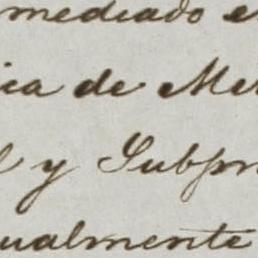 mediado e
ica de Me
l y Subpr
ualmente